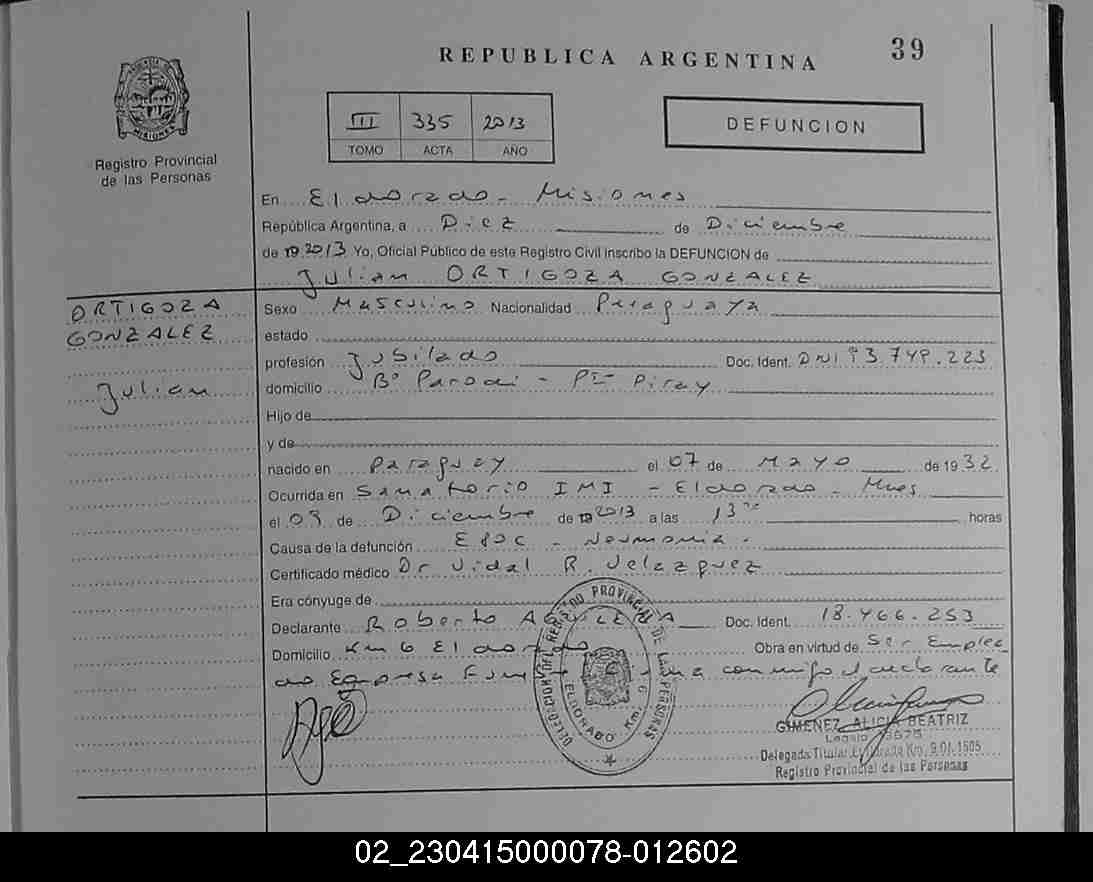 REPUBLICA ARGENTINA
39
PROVINCIA DE
MISIONES
Registro Provincial
de las Personas
III 335 2013
TOMO ACTA AÑO
DEFUNCION
En El dorado - Misiones
República Argentina, a Diez de Diciembre
de 2013 Yo, Oficial Público de este Registro Civil inscribo la DEFUNCION de
Julian ORTIGOZA GONZALEZ
ORTIGOZA
GONZALEZ
Julian
Sexo Masculino Nacionalidad Paraguaya
estado
profesión Jubilado Doc. Ident. DNI 93.749.223
domicilio Bº Parodi - Pto Piray
Hijo de
y de
nacido en Paraguay el 07 de Mayo de 1932
Ocurrida en Sanatorio IMI - Eldorado - Mnes
el 09 de Diciembre de 2013 a las 13 horas
Causa de la defunción EPOC - Neumonia -
Certificado médico Dr Vidal R. Velazquez
Era cónyuge de
Declarante Roberto AGUILERA Doc. Ident. 18.466.253
Domicilio Km 6 El dorado Obra en virtud de Ser Emplea
do Empresa conmigo el declarante
DELEGACION DEL REGISTRO PROVINCIAL DE LAS PERSONAS
ELDORADO Km.
GIMENEZ, ALICIA BEATRIZ
Legajo
Delegada Titular Eldorado Km. 9 Of. 1505
Registro Provincial de las Personas
02_230415000078-012602